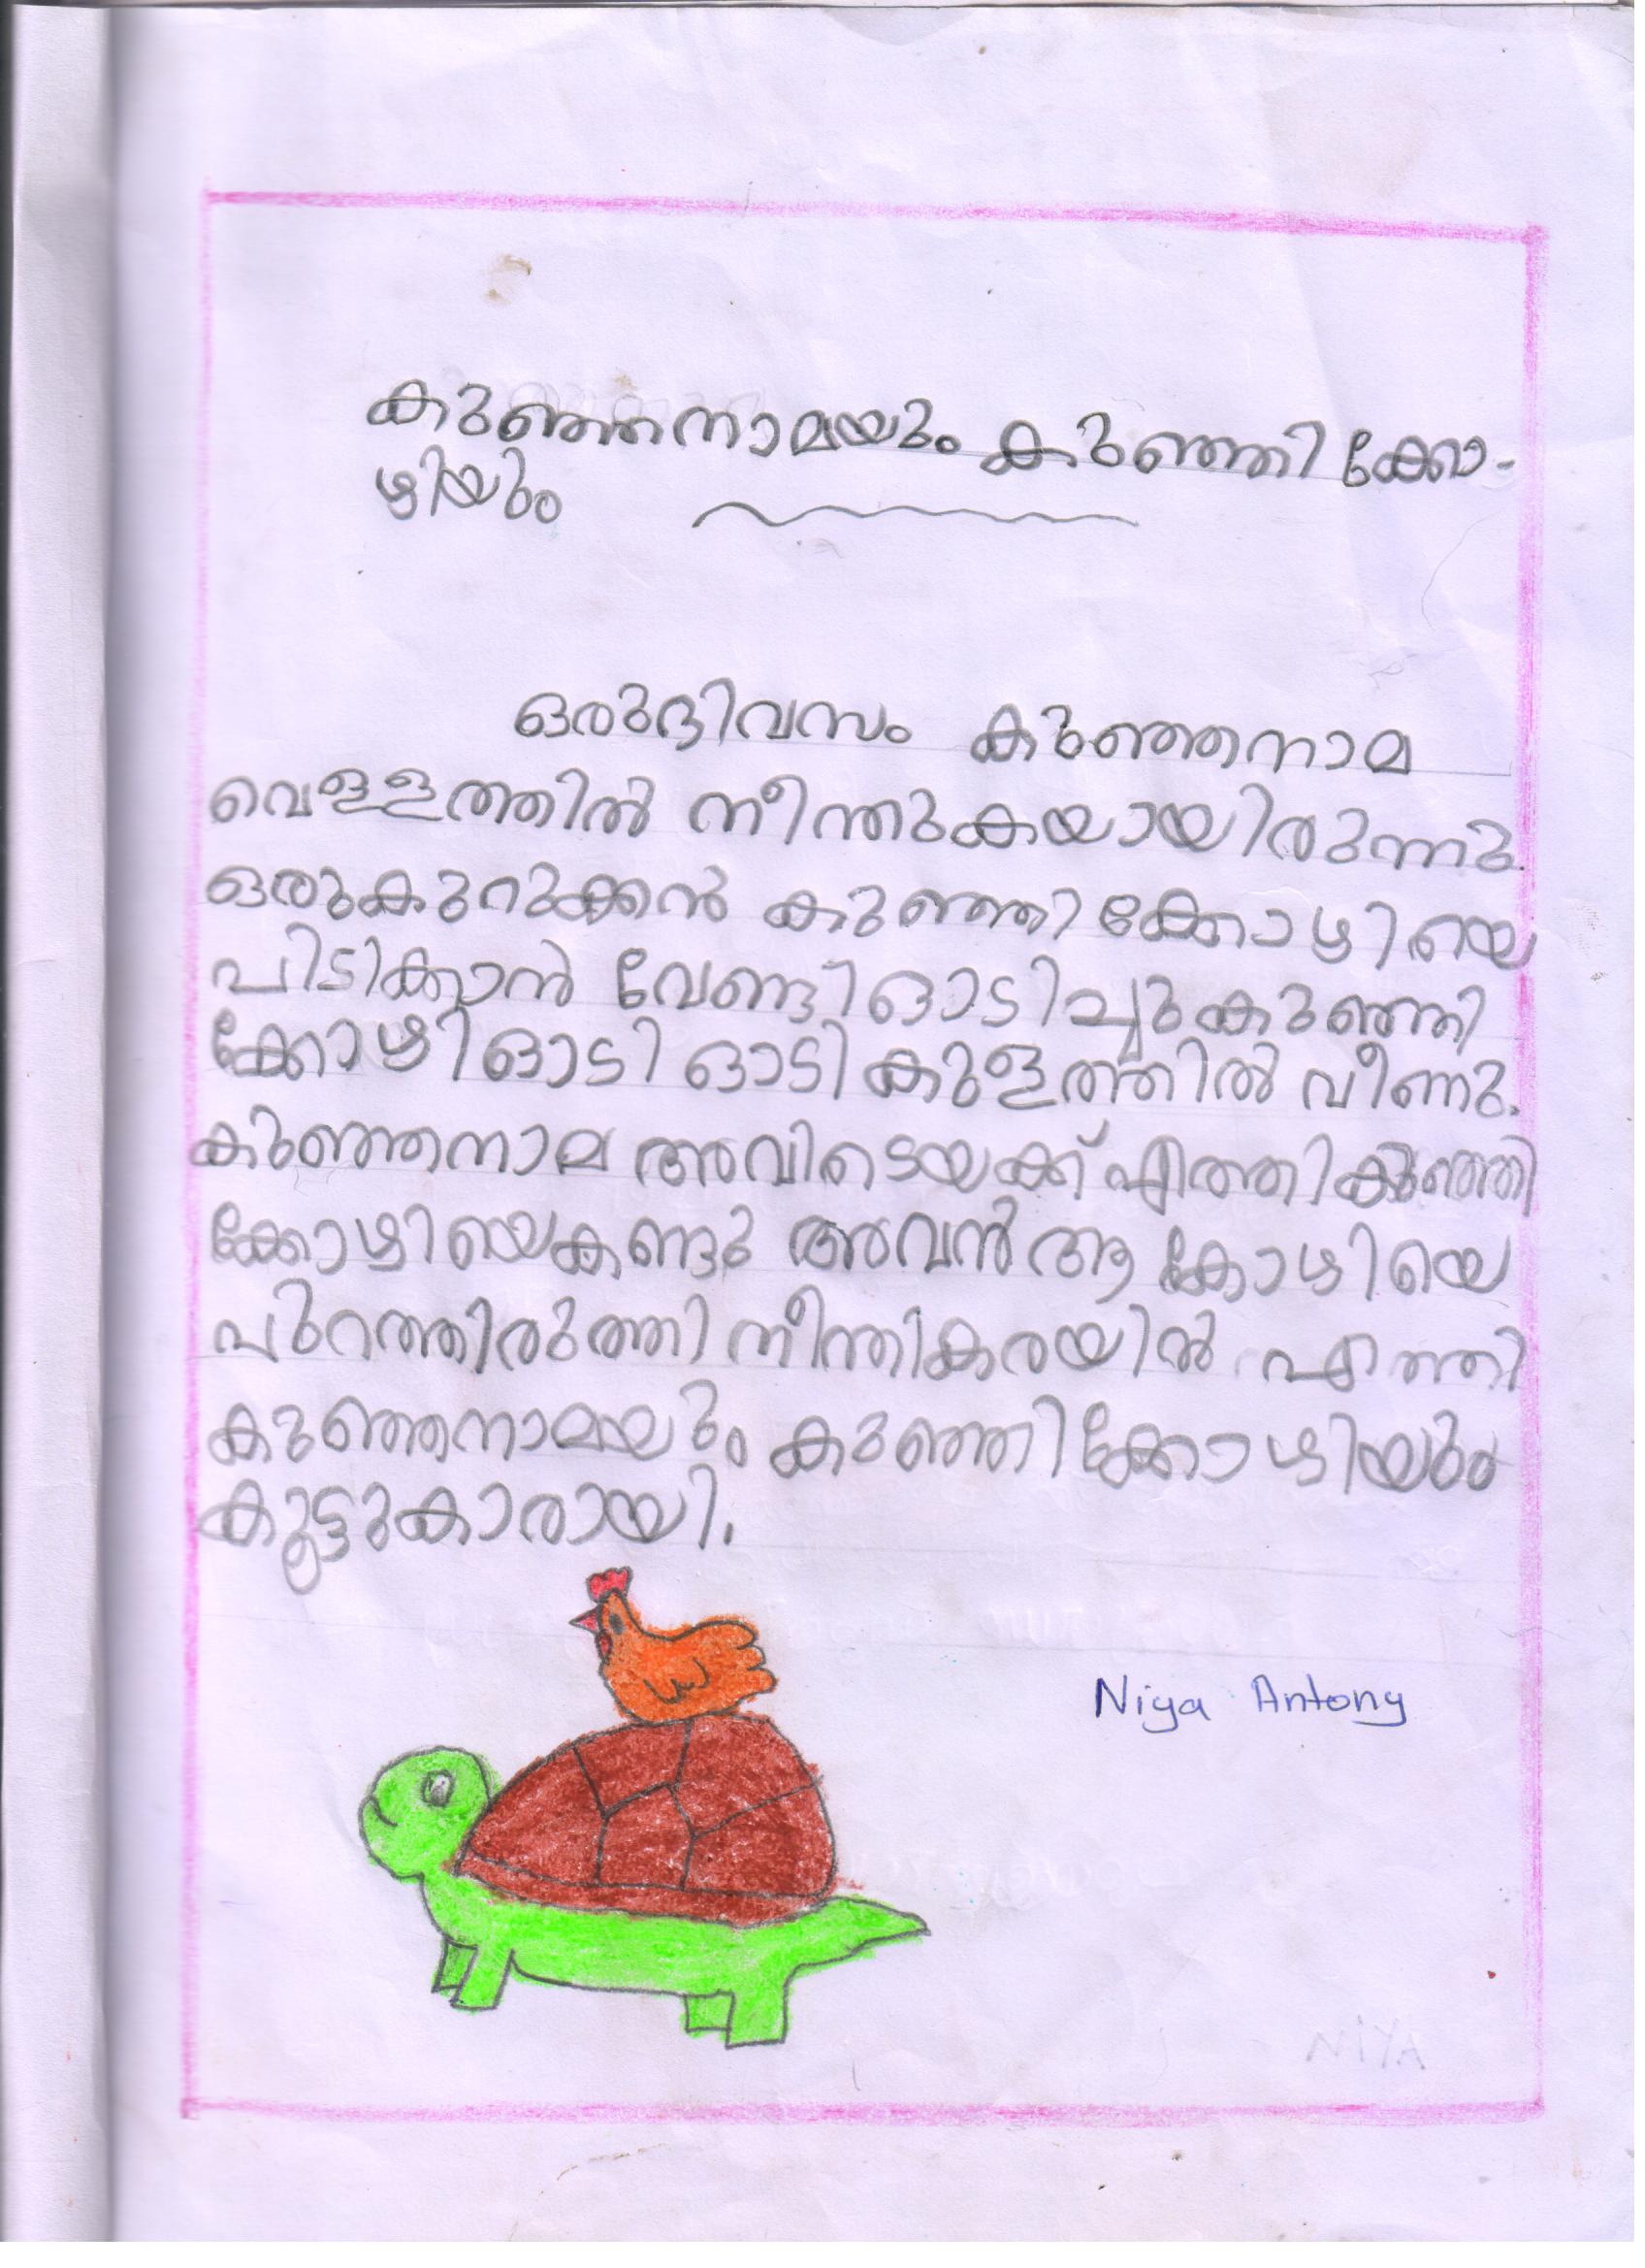 കുഞ്ഞനാമയും കുഞ്ഞിക്കോ-
ഴിയും
ഒരുദിവസം കുഞ്ഞനാമ
വെള്ളത്തിൽ നീന്തുകയായിരുന്നു.
ഒരുകുറുക്കൻ കുഞ്ഞിക്കോഴിയെ
പിടിക്കാൻ വേണ്ടി ഓടിച്ചു കുഞ്ഞി
ക്കോഴി ഓടി ഓടി കുളത്തിൽ വീണു.
കുഞ്ഞനാമ അവിടെയക്ക് എത്തി കുഞ്ഞി
ക്കോഴിയെകണ്ടു അവൻ ആ കോഴിയെ
പുറത്തിരുത്തി നീന്തികരയിൽ എത്തി
കുഞ്ഞനാമയും കുഞ്ഞിക്കോഴിയും
കൂട്ടുകാരായി.
Niya Antony
NIYA